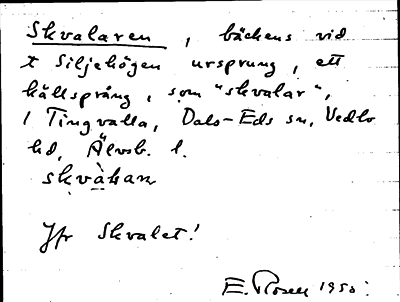 Skvalaren, bäckens vid
t Siljehögen ursprung, ett
källsprång, som "skvalar",
i Tingvalla, Dals-Eds sn, Vedbo
hd, Älvsb. l.
skvàḷaṇ
Jfr Skvalet!
E. Rosell 1950.